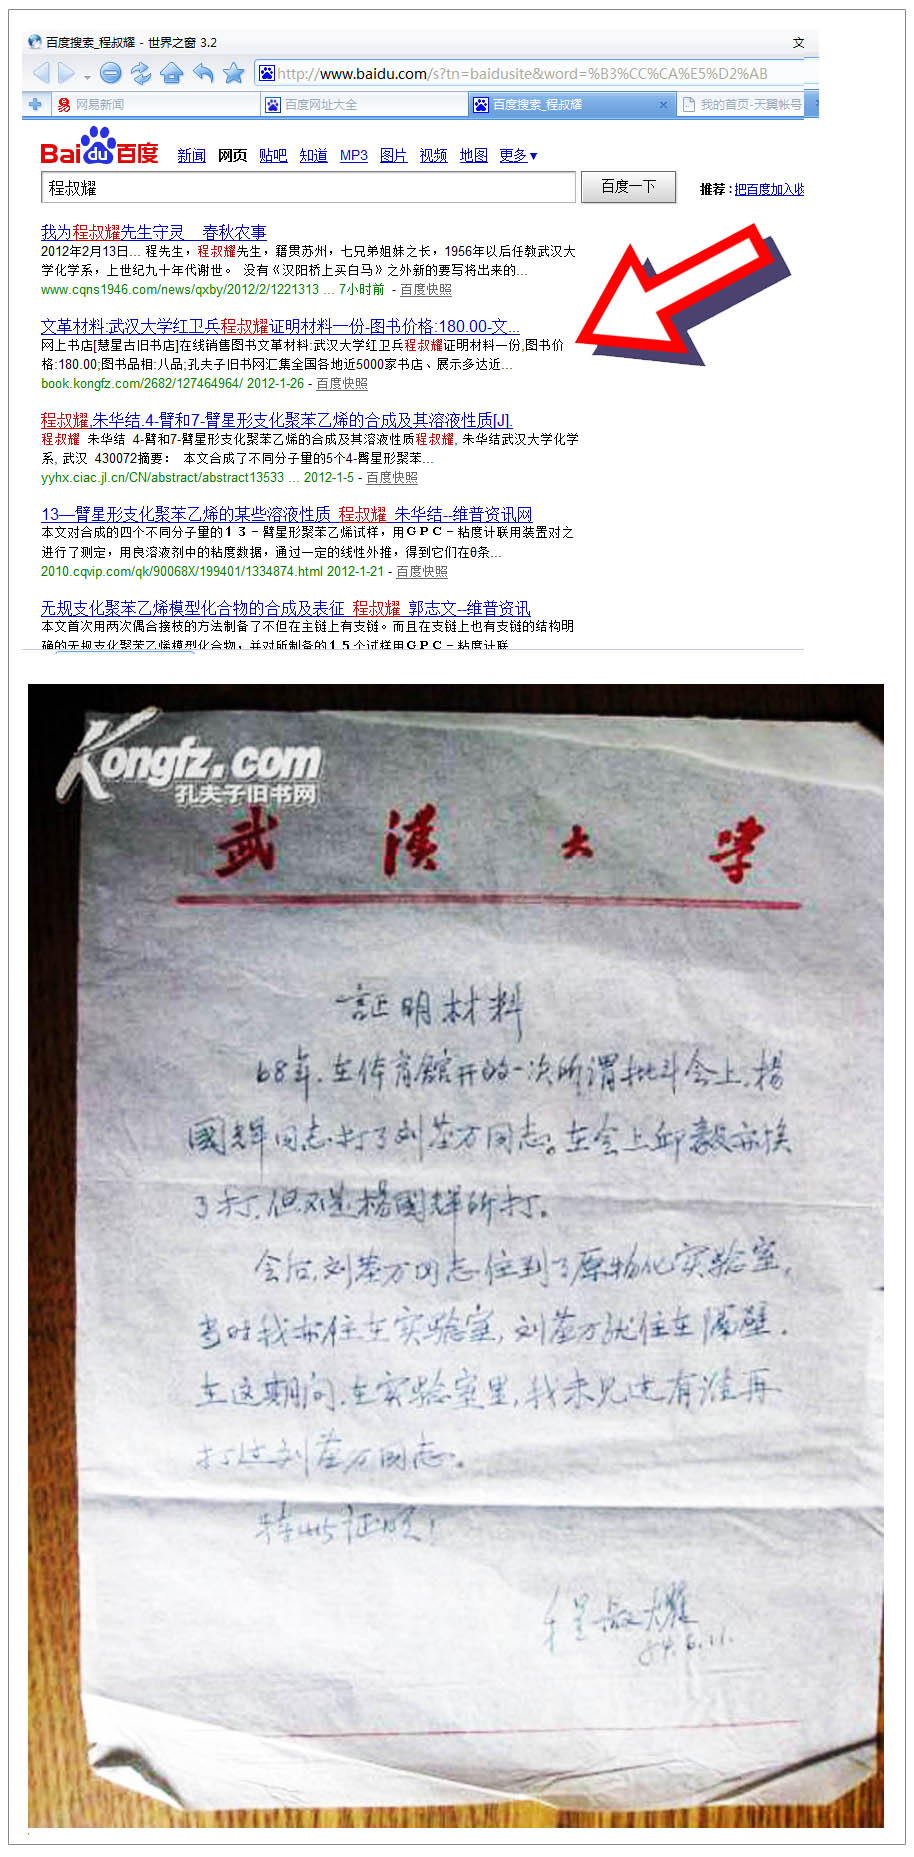 百度搜索_程叔耀 - 世界之窗 3.2
文
http://www.baidu.com/s?tn=baidusite&word=%B3%CC%CA%E5%D2%AB
网易新闻
百度网址大全
百度搜索_程叔耀
我的首页-天翼帐号
Bai du 百度
新闻 网页 贴吧 知道 MP3 图片 视频 地图 更多▼
程叔耀
百度一下
推荐:把百度加入收
我为程叔耀先生守灵__春秋农事
2012年2月13日... 程先生，程叔耀先生，籍贯苏州，七兄弟姐妹之长，1956年以后任教武汉大
学化学系，上世纪九十年代谢世。 没有《汉阳桥上买白马》之外新的要写将出来的...
www.cqns1946.com/news/qxby/2012/2/1221313 ... 7小时前 - 百度快照
文革材料:武汉大学红卫兵程叔耀证明材料一份-图书价格:180.00-文...
网上书店[慧星古旧书店]在线销售图书文革材料:武汉大学红卫兵程叔耀证明材料一份,图书价
格:180.00;图书品相:八品;孔夫子旧书网汇集全国各地近5000家书店、展示多达近...
book.kongfz.com/2682/127464964/ 2012-1-26 - 百度快照
程叔耀,朱华结.4-臂和7-臂星形支化聚苯乙烯的合成及其溶液性质[J].
程叔耀 朱华结 4-臂和7-臂星形支化聚苯乙烯的合成及其溶液性质程叔耀, 朱华结武汉大学化学
系, 武汉 430072摘要: 本文合成了不同分子量的5个4-臂星形聚苯...
yyhx.ciac.jl.cn/CN/abstract/abstract13533 ... 2012-1-5 - 百度快照
13—臂星形支化聚苯乙烯的某些溶液性质 程叔耀 朱华结--维普资讯网
本文对合成的四个不同分子量的１３－臂星形聚苯乙烯试样，用ＧＰＣ－粘度计联用装置对之
进行了测定，用良溶液剂中的粘度数据，通过一定的线性外推，得到它们在θ条...
2010.cqvip.com/qk/90068X/199401/1334874.html 2012-1-21 - 百度快照
无规支化聚苯乙烯模型化合物的合成及表征 程叔耀 郭志文--维普资讯
本文首次用两次偶合接枝的方法制备了不但在主链上有支链。而且在支链上也有支链的结构明
确的无规支化聚苯乙烯模型化合物，并对所制备的１５个试样用ＧＰＣ－粘度计联
Kongfz.com
孔夫子旧书网
武漢大学
証明材料
68年，在体育舘开的一次所谓批斗会上，楊
國輝同志打了刘基万同志。在会上邱毅亦挨
了打，但不是楊國輝所打。
会后，刘基万同志住到了原物化实验室，
当时我亦住在实验室，刘基万就住在隔壁．
在这期间，在实验室里，我未见过有谁再
打过刘基万同志。
特此证明！
程叔耀
84.6.11.